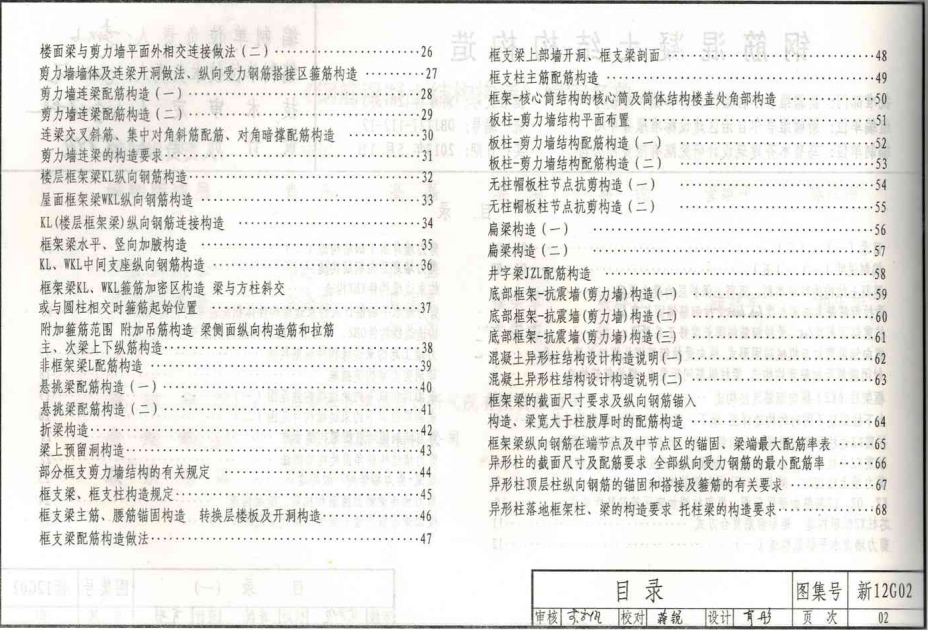 楼面梁与剪力墙平面外相交连接做法(二)……26
剪力墙墙体及连梁开洞做法、纵向受力钢筋搭接区箍筋构造……27
剪力墙连梁配筋构造(一)……28
剪力墙连梁配筋构造(二)……29
连梁交叉斜筋、集中对角斜筋配筋、对角暗撑配筋构造……30
剪力墙连梁的构造要求……31
楼层框架梁KL纵向钢筋构造……32
屋面框架梁WKL纵向钢筋构造……33
KL(楼层框架梁)纵向钢筋连接构造……34
框架梁水平、竖向加腋构造……35
KL、WKL中间支座纵向钢筋构造……36
框架梁KL、WKL箍筋加密区构造 梁与方柱斜交
或与圆柱相交时箍筋起始位置……37
附加箍筋范围 附加吊筋构造 梁侧面纵向构造筋和拉筋
主、次梁上下纵筋构造……38
非框架梁L配筋构造……39
悬挑梁配筋构造(一)……40
悬挑梁配筋构造(二)……41
折梁构造……42
梁上预留洞构造……43
部分框支剪力墙结构的有关规定……44
框支梁、框支柱构造规定……45
框支梁主筋、腰筋锚固构造 转换层楼板及开洞构造……46
框支梁配筋构造做法……47
框支梁上部墙开洞、框支梁剖面……48
框支柱主筋配筋构造……49
框架-核心筒结构的核心筒及筒体结构楼盖处角部构造……50
板柱-剪力墙结构平面布置……51
板柱-剪力墙结构配筋构造(一)……52
板柱-剪力墙结构配筋构造(二)……53
无柱帽板柱节点抗剪构造(一)……54
无柱帽板柱节点抗剪构造(二)……55
扁梁构造(一)……56
扁梁构造(二)……57
井字梁JZL配筋构造……58
底部框架-抗震墙(剪力墙)构造(一)……59
底部框架-抗震墙(剪力墙)构造(二)……60
底部框架-抗震墙(剪力墙)构造(三)……61
混凝土异形柱结构设计构造说明(一)……62
混凝土异形柱结构设计构造说明(二)……63
框架梁的截面尺寸要求及纵向钢筋锚入
构造、梁宽大于柱肢厚时的配筋构造……64
框架梁纵向钢筋在端节点及中节点区的锚固、梁端最大配筋率表……65
异形柱的截面尺寸及配筋要求 全部纵向受力钢筋的最小配筋率……66
异形柱顶层柱纵向钢筋的锚固和搭接及箍筋的有关要求……67
异形柱落地框架柱、梁的构造要求 托柱梁的构造要求……68
目录 图集号 新12G02
审核 校对 设计 页次 02